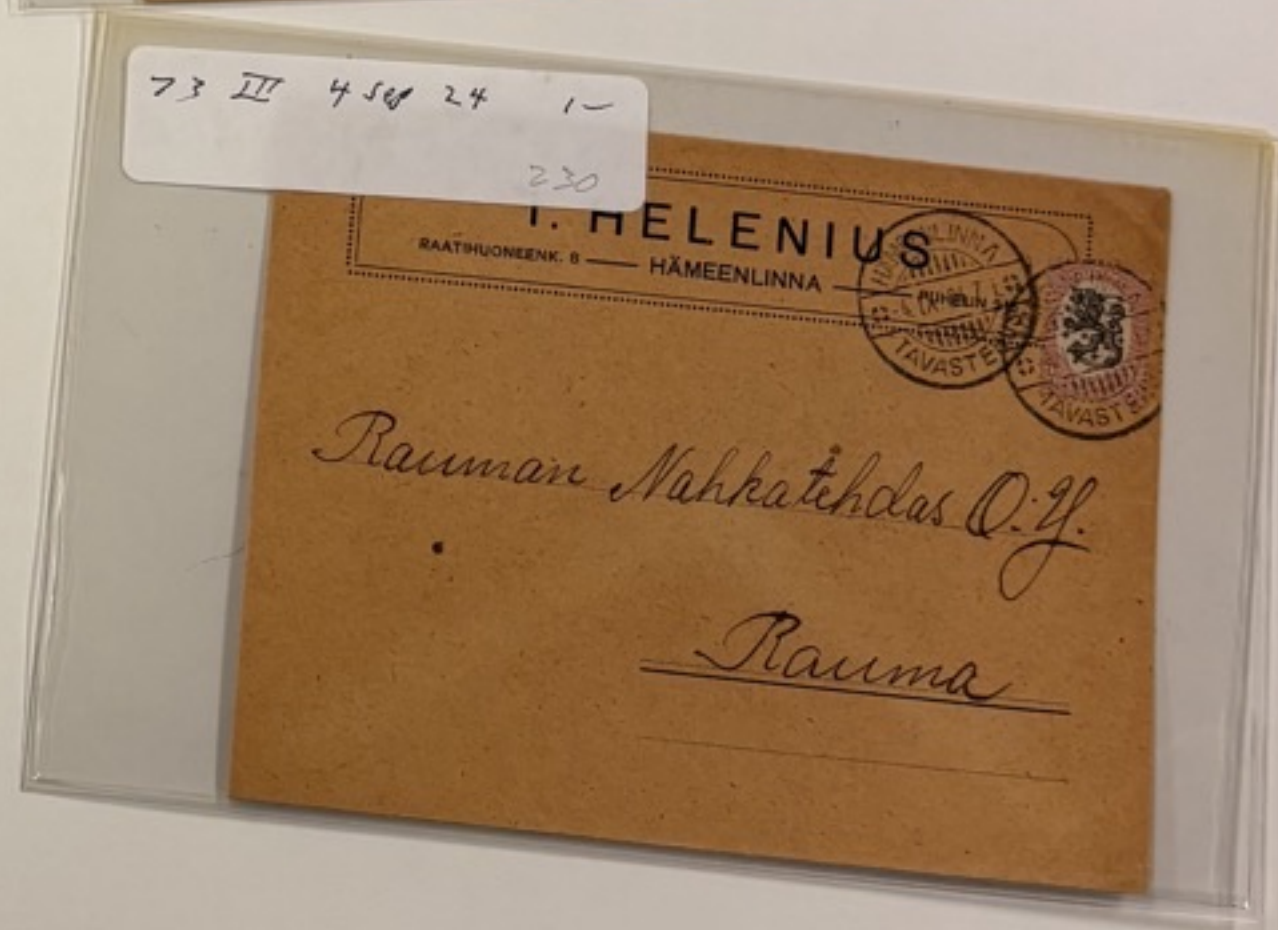 73 III 4 Sep 24 1-
230
HELENIUS
RAATIHUONEENK. 8 — HÄMEENLINNA — PUHELIN
HÄMEENLINNA
TAVASTEHUS
TAVAST
Rauman Nahkatehdas O.Y.
Rauma